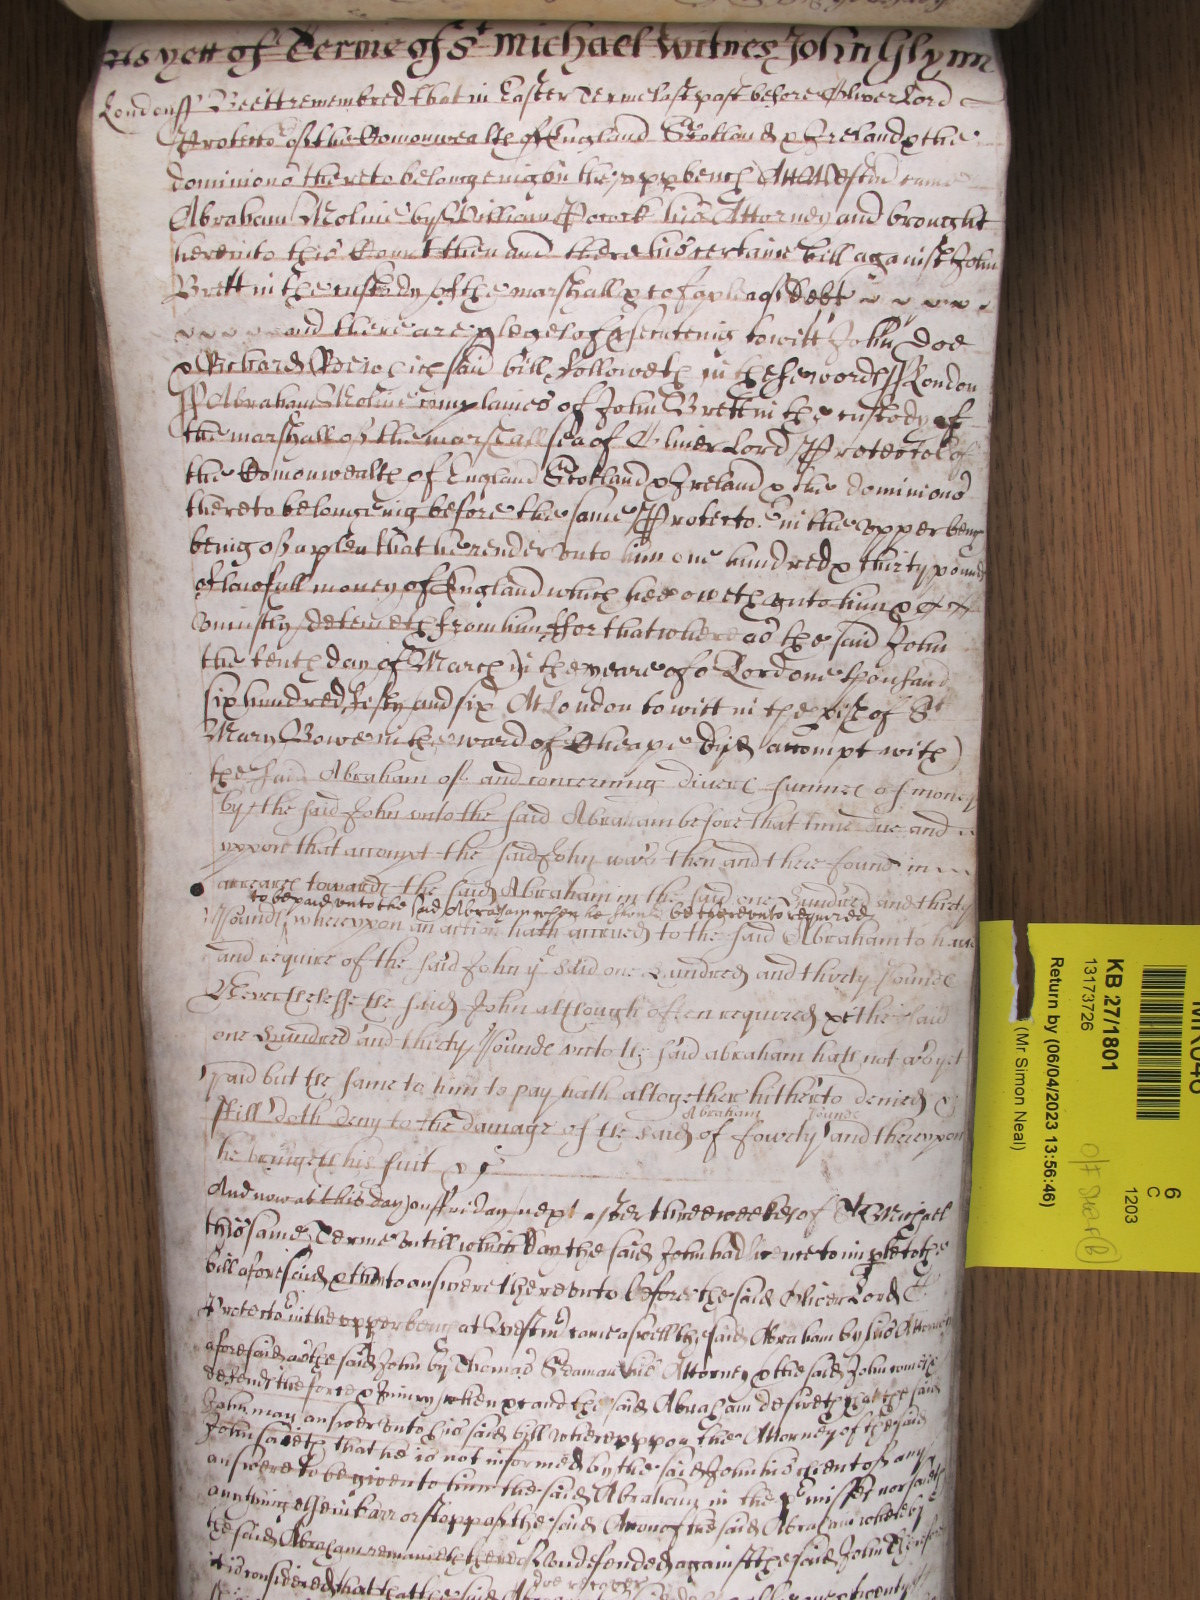 As yett of Terme of St Michael Witnes John Glynn
London ss Bee itt remembred that in Easter Terme last past before Oliver Lord
Protector of the Comonwealth of England Scotland & Ireland & the
dominions thereto belongeing in the upp bench Att Westm came
Abraham Moline by William Pocock his Attorney and brought
here into this Court then and there his certaine bill against John
Brett in the custody of the marshall &c of a plea of debt
and there are pledges of p'secuteing towitt John Doe
& Richard Roe which said bill followeth in these words ss London
ss Abraham Moline complaines of John Brett in the custody of
the marshall of the marshallsea of Oliver Lord Protector of
the Comonwealth of England Scotland & Ireland & the dominions
thereto belongeing before the same Protector in the upper bench
being of a plea that he render unto him one hundred & thirty pounds
of lawfull money of England which hee oweth unto him &
uniustly deteineth from him ffor that whereas the said John
the tenth day of March in the yeare of o Lord one thousand
six hundred fifty and six At London towitt in the pish of St
Mary Bowe in the ward of Cheape did accompt with
the said Abraham of and concerning divers summes of money
by the said John unto the said Abraham before that time due and
uppon that accompt the said John was then and there found in
arreares towards the said Abraham in the said one hundred and thirty
to be paid unto the said Abraham when he should be thereunto required
Pounds whereuppon an action hath accrued to the said Abraham to have
and require of the said John ye said one hundred and thirty Pounds
Neverthelesse the said John although often required &c the said
one hundred and thirty Pounds unto the said Abraham hath not as yet
paid but the same to him to pay hath altogether hitherto denied &
still doth deny to the damage of the said of fowrty and thereupon
Abraham Pounds
he bringeth his suit &c
And now at this day on ffriday next after three weekes of St Michael
this same Terme untill which day the said John had licence to imple to the
bill aforesaid & then to answere thereunto before the said Oliver Lord
Protector in the upper bench at Westm came aswell the said Abraham by his Attorney
aforesaid as the said John by Thomas Seaman his Attorney & the said John cometh
defends the force & Iniury when &c and the said Abraham desireth that the said
John may answer unto his said bill whereuppon the Attorney of the said
John saieth that he is not informed by the said John his client of any
answere to be given to him the said Abraham in the p'misses nor saith
anything else in barr or stopp of the said Accon of the said Abraham whereby
the said Abraham remaineth thereof undefended against the said John Therefore
it is considered that the said
doe recover
MR046
6
C
1203
KB 27/1801
13173726
Return by (06/04/2023 13:56:46)
(Mr Simon Neal)